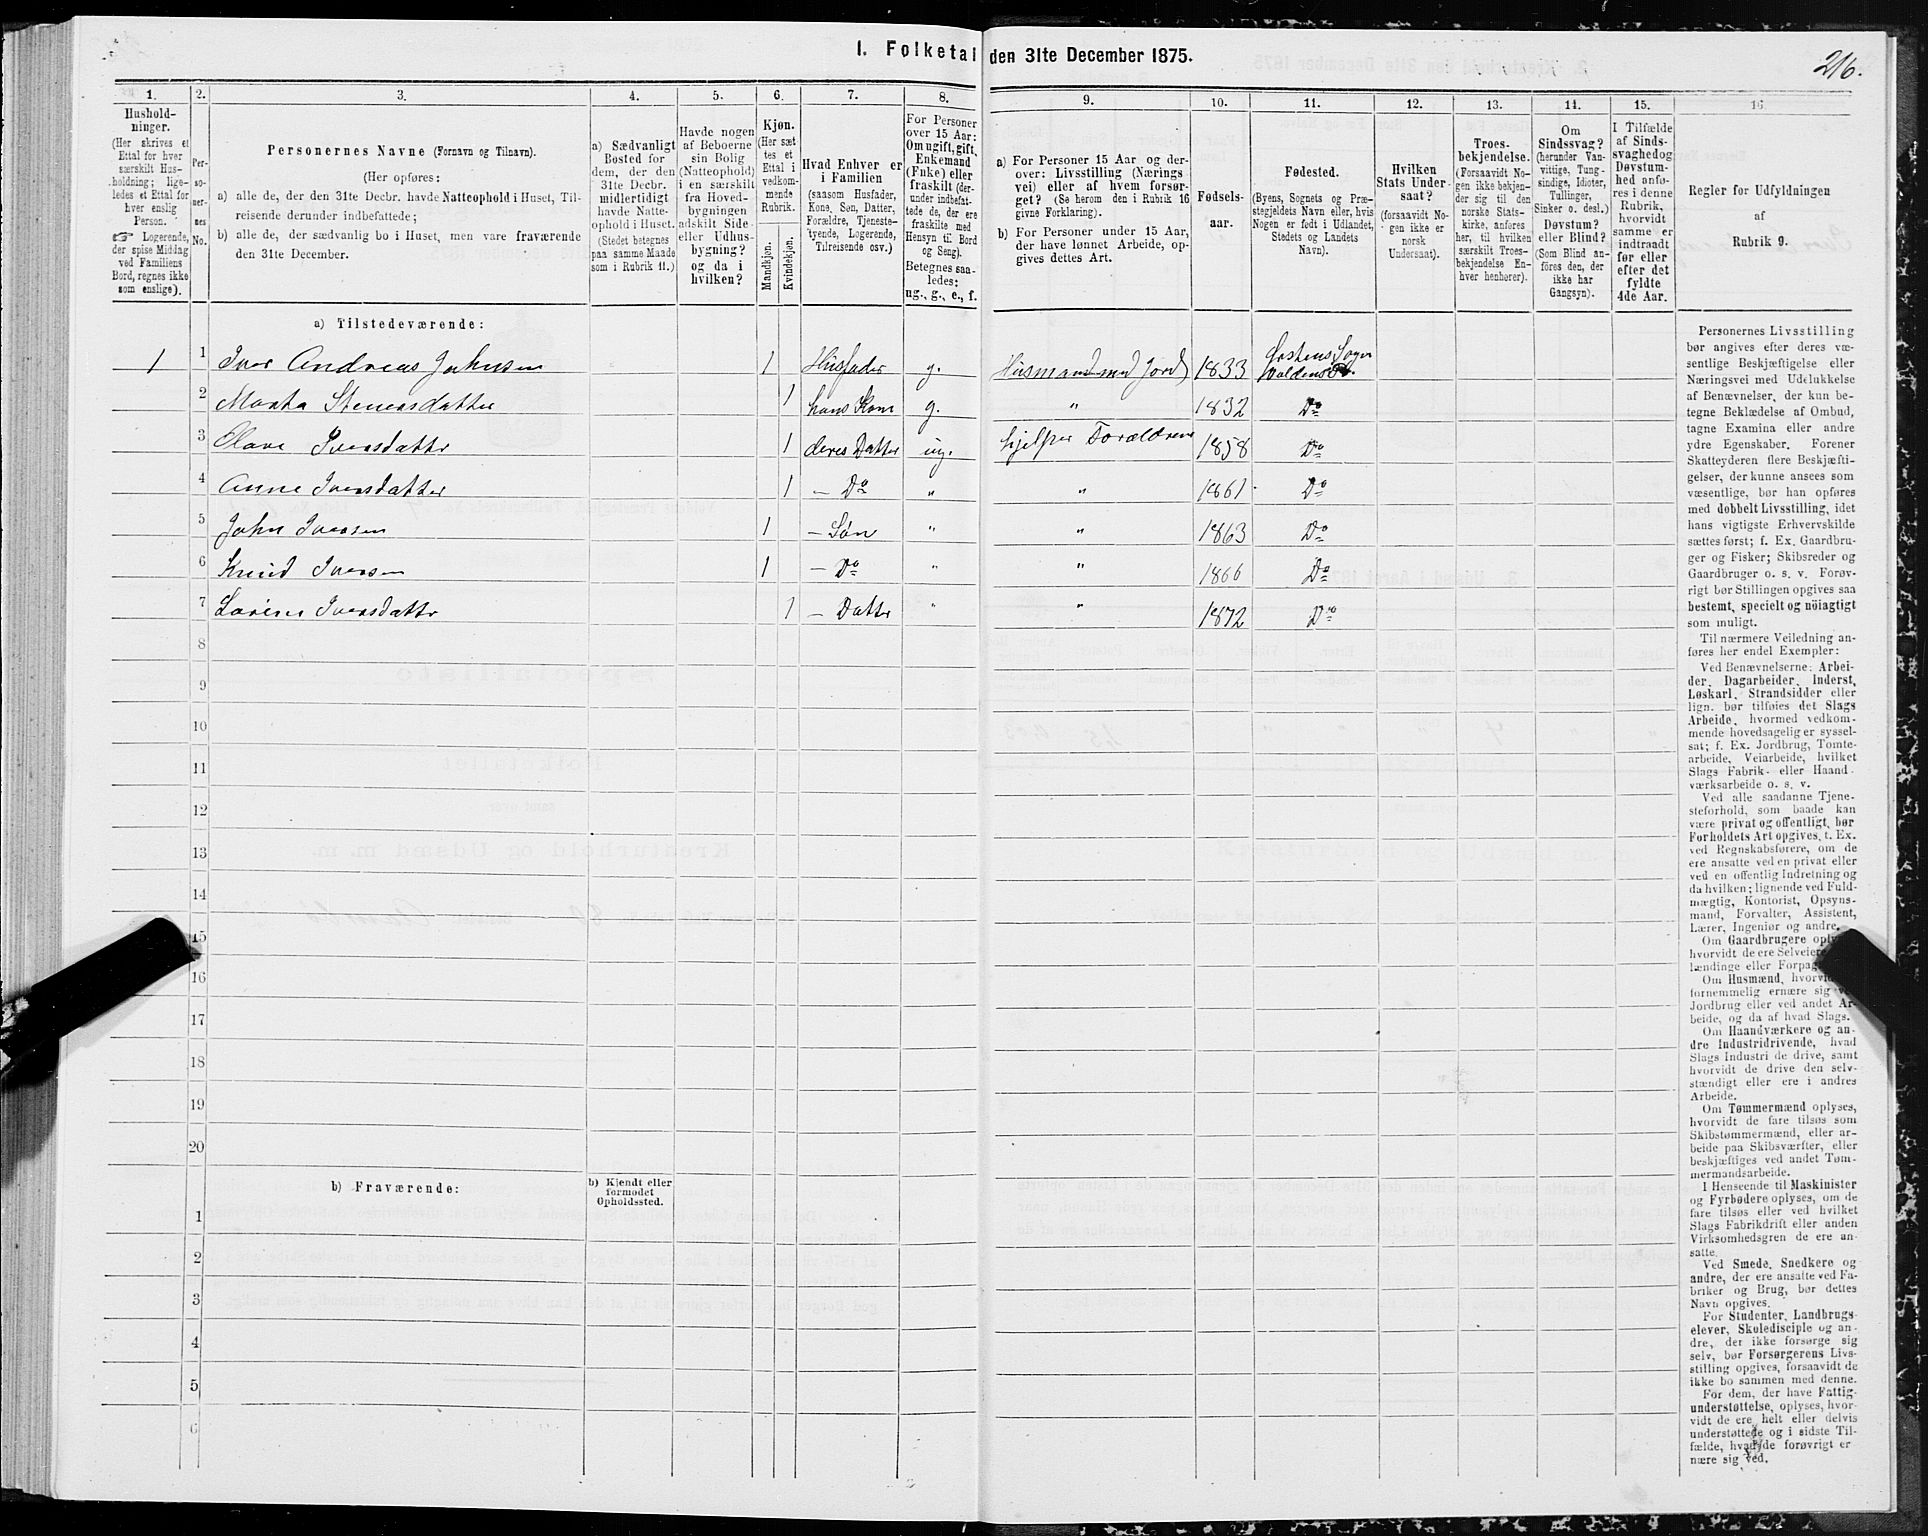 I. Folketal den 31te December 1875.
216.
1. 2. 3. 4. 5. 6. 7. 8. 9. 10. 11. 12. 13. 14. 15. 16.
Hushold-
ninger.
(Her skrives et
Ettal for hver
særskilt Hus-
holdning; lige-
ledes et Ettal for
hver enslig
Person.
☞ Logerende,
der spise Middag
ved Familiens
Bord, regnes ikke
som enslige).
Per-
so-
ner-
nes
No.
Personernes Navne (Fornavn og Tilnavn).
(Her opføres:
a) alle de, der den 31te Decbr. havde Natteophold i Huset, Til-
reisende derunder indbefattede;
b) alle de, der sædvanlig bo i Huset, men vare fraværende
den 31te December.
a) Sædvanligt
Bosted for
dem, der den
31te Decbr.
midlertidigt
havde Natte-
ophold i Huset.
(Stedet betegnes
paa samme Maade
som i Rubrik 11.)
Havde nogen
af Beboerne
sin Bolig
(Natteophold)
i en særskilt
fra Hoved-
bygningen
adskilt Side-
eller Udhus-
bygning?
og da i
hvilken?
Kjøn.
(Her sæt-
tes et
Ettal i
vedkom-
mende
Rubrik.
Mandkjøn.
Kvindekjøn.
Hvad Enhver er
i Familien
(saasom Husfader,
Kone, Søn, Datter,
Forældre, Tjeneste-
tyende, Logerende,
Tilreisende osv.)
For Personer
over 15 Aar:
Om ugift, gift,
Enkemand
(Enke) eller
fraskilt (der-
under indbefat-
tede de, der ere
fraskilte med
Hensyn til Bord
og Seng).
Betegnes saa-
ledes:
ug., g., e., f.
a) For Personer 15 Aar og der-
over: Livsstilling (Nærings-
vei) eller af hvem forsør-
get? (Se herom den i Rubrik 16
givne Forklaring).
b) For Personer under 15 Aar,
der have lønnet Arbeide, op-
gives dettes Art.
Fødsels-
aar.
Fødested.
(Byens, Sognets og Præ-
stegjeldets Navn eller, hvis
Nogen er født i Udlandet,
Stedets og Landets
Navn).
Hvilken
Stats Under-
saat?
(forsaavidt No-
gen ikke er
norsk
Undersaat).
Troes-
bekjendelse.
(Forsaavidt No-
gen ikke bekjen-
der sig til den
norske Stats-
kirke, anføres
her, til hvilken
særskilt Troes-
bekjendelse En-
hver henhører).
Om
Sindssvag?
(herunder Van-
vittige, Tung-
sindige, Idioter,
Tullinger,
Sinker o. desl.)
Døvstum?
eller Blind?
(Som Blind an-
føres den, der
ikke har
Gangsyn).
I Tilfælde
af Sinds-
svaghed og
Døvstum-
hed anfø-
res i denne
Rubrik,
hvorvidt
samme er
indtraadt
før eller
efter det
fyldte
4de Aar.
Regler for Udfyldningen
af
Rubrik 9.
a) Tilstedeværende:
1 1 Iver Andreas Johnsen 1 Husfader g. Husmand med Jord 1833
2 Marta Stenersdatter 1 hans Kone g. " 1832 Do
3 Olava Iversdatter 1 deres Datter ug. hjelper Forældrene 1858 Do
4 Anne Iversdatter 1 — Do " " 1861 Do
5 John Iversen 1 — Søn " " 1863 Do
6 Knud Iversen 1 — Do " " 1866 Do
7 Lorine Iversdatter 1 — Datter " " 1872 Do
8
9
10
11
12
13
14
15
16
17
18
19
20
b) Fraværende:
b) Kjendt eller
formodet
Opholdssted.
1
2
3
4
5
6
Personernes Livsstilling
bør angives efter deres væ-
sentlige Beskjæftigelse eller
Næringsvei med Udelukkelse
af Benævnelser, der kun be-
tegne Beklædelse af Ombud,
tagne Examina eller andre
ydre Egenskaber. Forener
Skatteyderen flere Beskjæfti-
gelser, der kunne ansees som
væsentlige, bør han opføres
med dobbelt Livsstilling, idet
hans vigtigste Erhvervskilde
sættes først; f. Ex. Gaardbru-
ger og Fisker; Skibsreder og
Gaardbruger o. s. v. Forøv-
rigt bør Stillingen opgives saa
bestemt, specielt og nøiagtigt
som muligt.
Til nærmere Veiledning an-
føres her endel Exempler:
Ved Benævnelserne: Arbei-
der, Dagarbeider, Inderst,
Løskarl, Strandsidder eller
lign. bør tilføies det Slags
Arbeide, hvormed vedkom-
mende hovedsagelig er syssel-
sat; f. Ex. Jordbrug, Tomte-
arbeide, Veiarbeide, hvilket
Slags Fabrik- eller Haand-
værksarbeide o. s. v.
Ved alle saadanne Tjene-
steforhold, som baade kan
være privat og offentligt, bør
Forholdets Art opgives, t. Ex.
ved Regnskabsførere, om de
ere ansatte ved en privat eller
ved en offentlig Indretning og
da hvilken; lignende ved Fuld-
mægtig, Kontorist, Opsyns-
mand, Forvalter, Assistent,
Lærer, Ingeniør og andre.
Om Gaardbrugere oply
hvorvidt de ere Selveiere
lændinge eller Forpag
Om Husmænd, hvorvid
fornemmelig ernære sig v
Jordbrug eller ved andet Ar-
beide, og da af hvad Slags.
Om Haandværkere og an-
dre Industridrivende, hvad
Slags Industri de drive, samt
hvorvidt de drive den selv-
stændigt eller ere i andres
Arbeide.
Om Tømmermænd oplyses,
hvorvidt de fare tilsøs som
Skibstømmermænd, eller ar-
beide paa Skibsværfter, eller
beskjæftiges ved andet Tøm-
mermandsarbeide.
I Henseende til Maskinister
og Fyrbødere oplyses, om de
fare tilsøs eller ved hvilket
Slags Fabrikdrift eller anden
Virksomhedsgren de ere an-
satte.
Ved Smede, Snedkere og
andre, der ere ansatte ved Fa-
briker og Brug, bør dettes
Navn opgives.
For Studenter, Landbrugs-
elever, Skoledisciple og an-
dre, der ikke forsørge sig
selv, bør Forsørgerens Livs-
stilling opgives, forsaavidt de
ikke bo sammen med denne.
For dem, der have Fattig-
understøttelse, oplyses, hvor-
vidt de ere helt eller delvis
understøttede og i sidste Til-
fælde, hvad de forøvrigt er
nære sig ved.